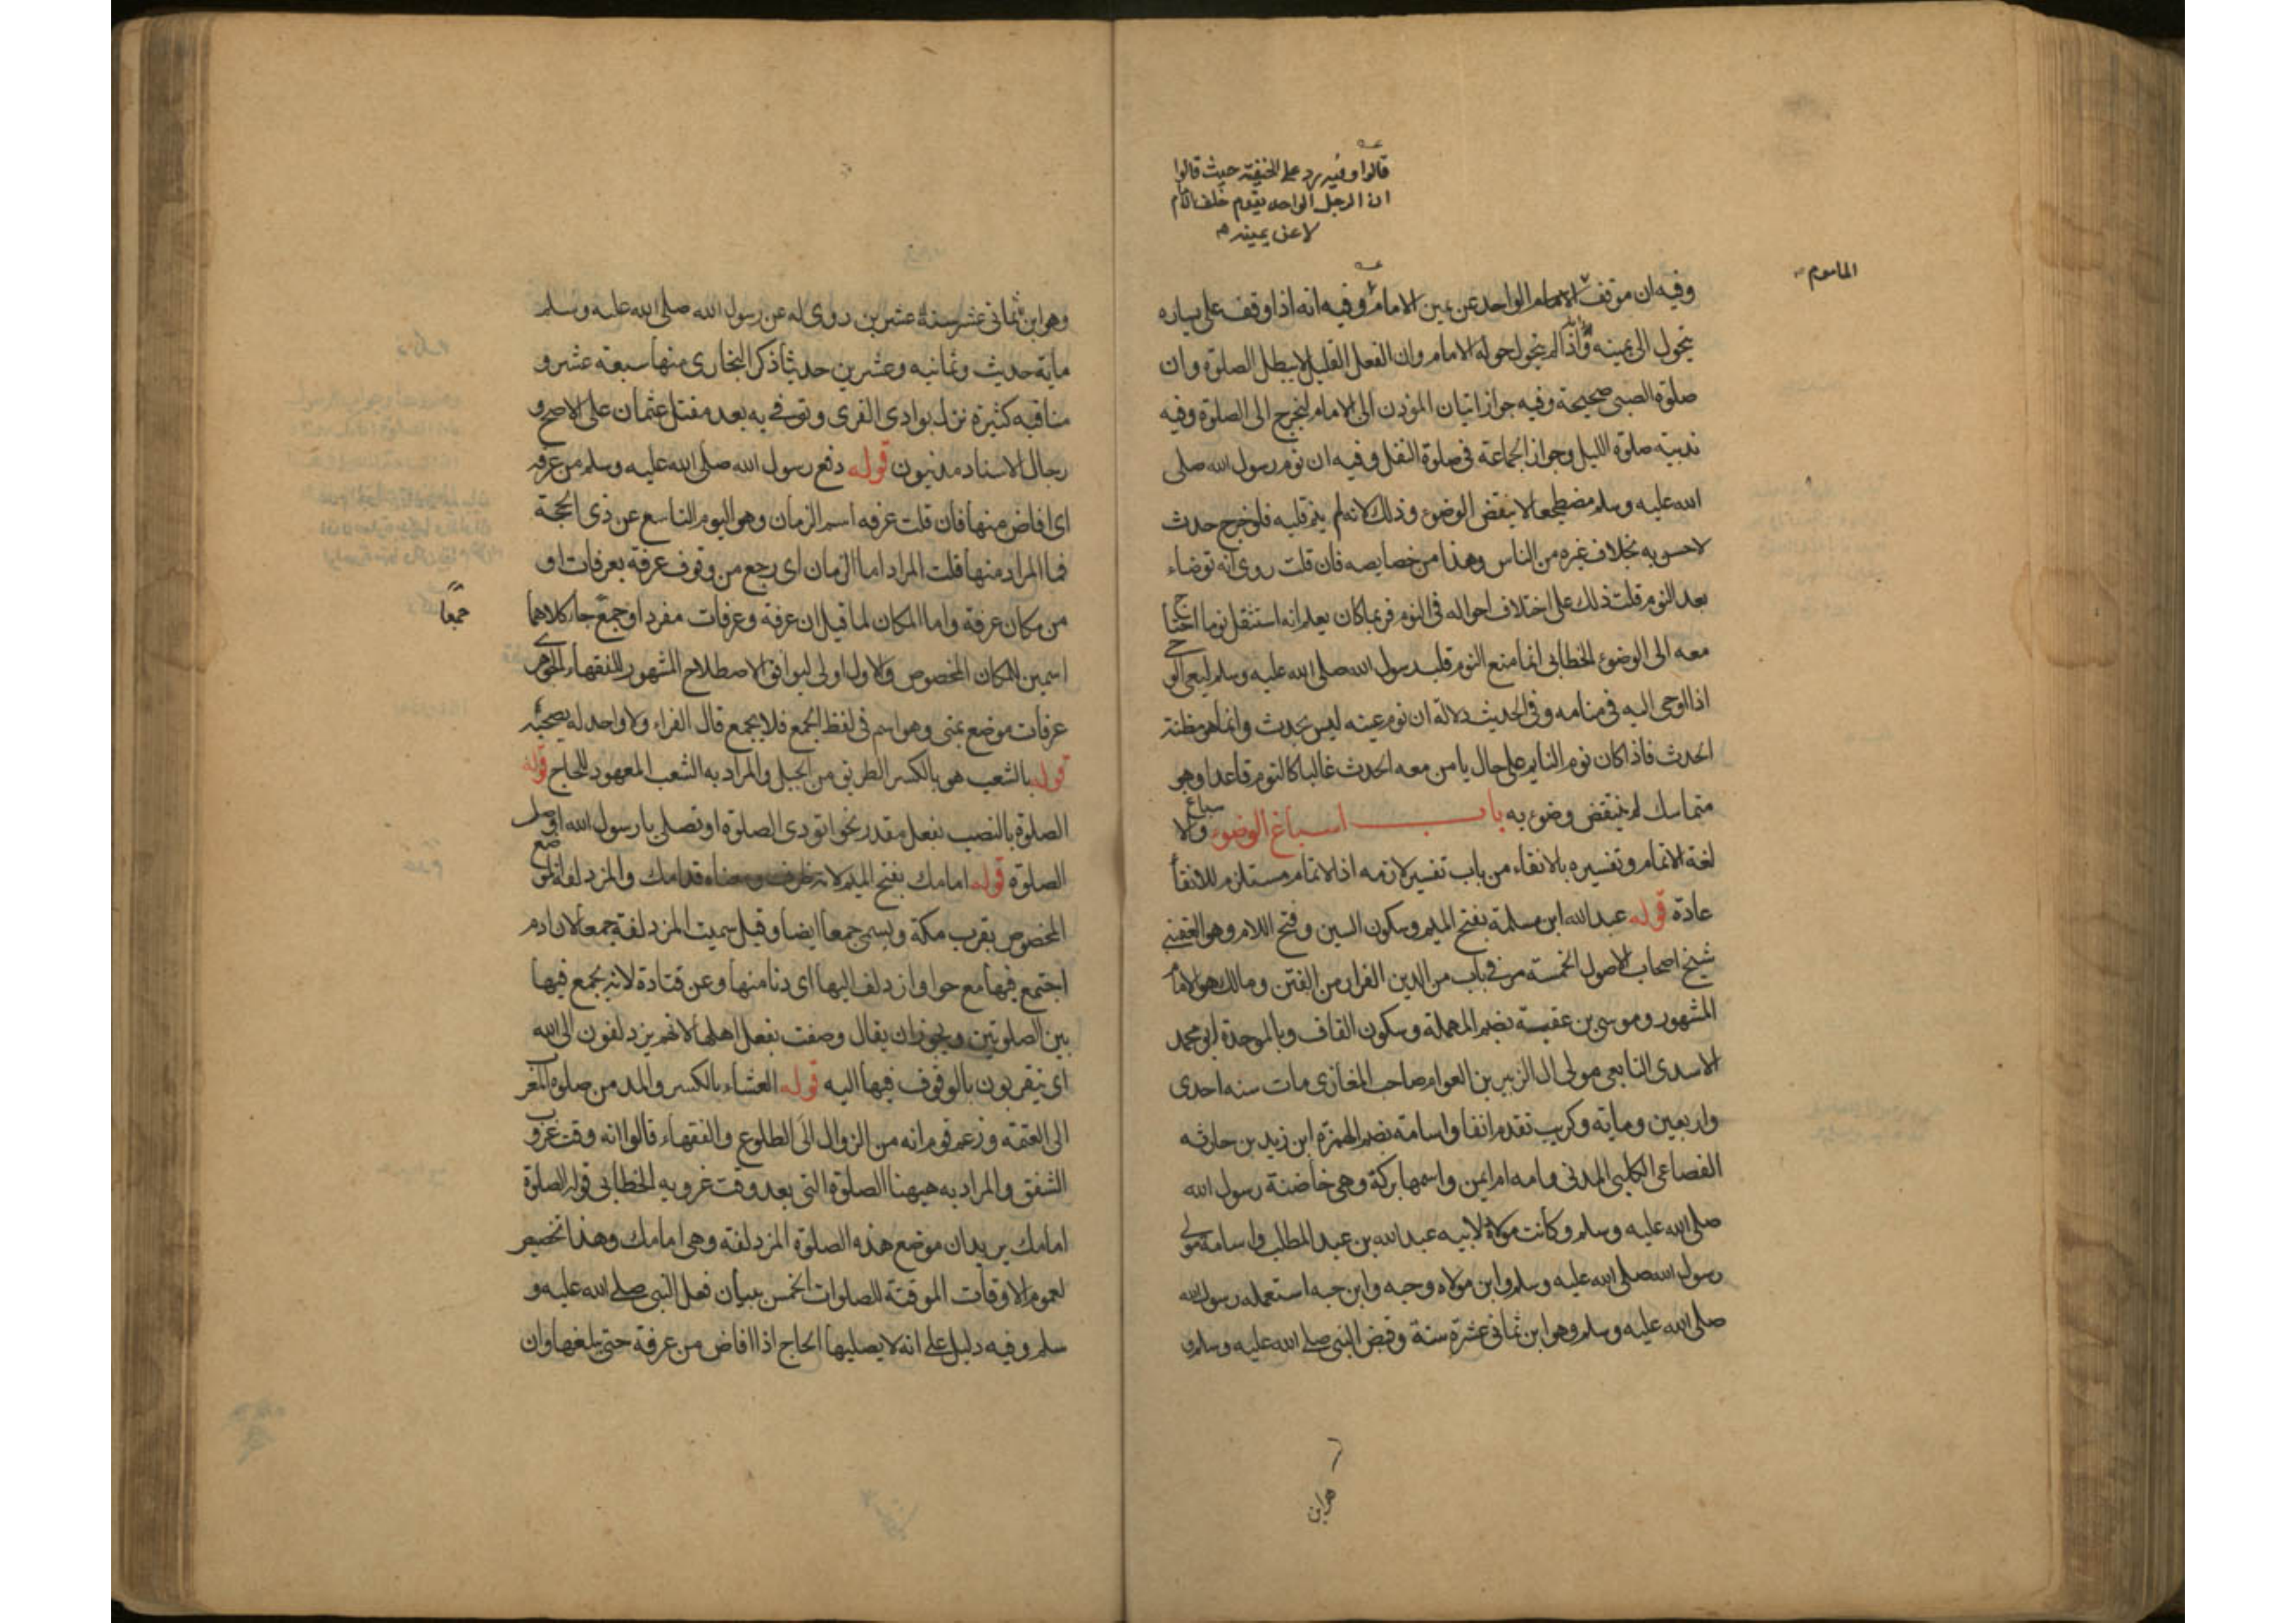 قالوا وفيه رد على الحنفية حيث قالوا
ان الرجل الواحد يقوم خلف الامام
لا عن يمينه
الماموم
وفيه ان موقف الامام الواحد عن يمين الامام وفيه انه اذا وقف على يساره
يتحول الى يمينه واذا لم يتحول حوله الامام وان الفعل القليل لا يبطل الصلوة وان
صلوة الصبى صحيحة وفيه جواز اتيان المؤذن الى الامام ليخرج الى الصلوة وفيه
ندبية صلوة الليل وجواز الجماعة فى صلوة النفل وفيه ان نوم رسول الله صلى
الله عليه وسلم مضطجعا لا ينقض الوضوء وذلك لانه لم ينم قلبه فلو خرج حدث
لاحس به بخلاف غيره من الناس وهذا من خصايصه فان قلت روى انه توضاء
بعد النوم قلت ذلك على اختلاف احواله فى النوم فربما كان يعلم انه استثقل نوما احتاج
معه الى الوضوء الخطابى انما منع النوم قلب رسول الله صلى الله عليه وسلم ليعى الوحى
اذا اوحى اليه فى منامه وفى الحديث دلالة ان نوم عينه ليس بحدث وانما هو مظنة
الحدث فاذا كان نوم النايم على حال يامن معه الحدث غالبا كالنوم قاعدا وهو
متماسك لم ينتقض وضوءه به باب اسباغ الوضوء والاسباغ
لغة الاتمام وتفسيره بالانقاء من باب تفسير لازمه اذ الاتمام مستلزم للانقاء
عادة قوله عبد الله ابن مسلمة بفتح الميم وسكون السين وفتح اللام وهو القعنبى
شيخ اصحاب الاصول الخمسة مر فى باب من الدين الفرار من الفتن ومالك هو الامام
المشهور وموسى بن عقبة بضم المهملة وسكون القاف وبالموحدة ابو محمد
الاسدى التابعى مولى ال الزبير بن العوام صاحب المغازى مات سنه احدى
واربعين وماية وكريب تقدم انفا واسامة بضم الهمزة ابن زيد بن حارثه
القضاعى الكلبى المدنى وامه ام ايمن واسمها بركة وهى حاضنة رسول الله
صلى الله عليه وسلم وكانت مولاة لابيه عبد الله بن عبد المطلب واسامة مولى
رسول الله صلى الله عليه وسلم وابن مولاه وحبه وابن حبه استعمله رسول الله
صلى الله عليه وسلم وهو ابن ثمانى عشرة سنة وقبض النبى صلى الله عليه وسلم و
وهو ابن ثمانى عشر سنة عشرين روى له عن رسول الله صلى الله عليه وسلم
ماية حديث وثمانيه وعشرين حديثا ذكر البخارى منها سبعة عشر و
مناقبه كثيرة نزل بوادى القرى وتوفى به بعد مقتل عثمان على الاصح و
رجال الاسناد مدنيون قوله دفع رسول الله صلى الله عليه وسلم من عرفه
اى افاض منها فان قلت عرفه اسم الزمان وهو اليوم التاسع عن ذى الحجة
فما المراد منها قلت المراد اما الزمان اى رجع من وقوف عرفة بعرفات او
من مكان عرفة واما المكان لما قيل ان عرفة وعرفات مفردا وجمع جاء كلاهما
جمعا
اسمين للمكان المخصوص والاول اولى ليوافق الاصطلاح المشهور للفقهاء الجوهرى
عرفات موضع بمنى وهو اسم فى لفظ الجمع فلا يجمع قال الفراء ولا واحد له بصحة
قوله بالشعب هو بالكسر الطريق من الجبل والمراد به الشعب المعهود للحاج قوله
الصلوة بالنصب بفعل مقدر نحو اتودى الصلوة او تصلى يا رسول الله او صل
الصلوة قوله امامك بفتح الميم لانه ظرف ومعناه قدامك والمزدلفة الموضع
المخصوص بقرب مكة ويسمى جمعا ايضا وقيل سميت المزدلفة جمعا لان ادم
اجتمع فيها مع حوا وازدلف اليها اى دنا منها وعن قتادة لانه يجمع فيها
بين الصلوتين ويجوز ان يقال وصفت بفعل اهلها لانهم يزدلفون الى الله
اى يتقربون بالوقوف فيها اليه قوله العشاء بالكسر والمد من صلوة المغرب
الى العتمة وزعم قوم انه من الزوال الى الطلوع والفقهاء قالوا انه وقت غروب
الشفق والمراد به ههنا الصلوة التى بعد وقت غروبه الخطابى قوله الصلوة
امامك يريد ان موضع هذه الصلوة المزدلفة وهى امامك وهذا تخصيص
لعموم الاوقات الموقتة للصلوات الخمس ببيان فعل النبى صلى الله عليه و
سلم وفيه دليل على انه لا يصليها الحاج اذا افاض من عرفة حتى يبلغها وان